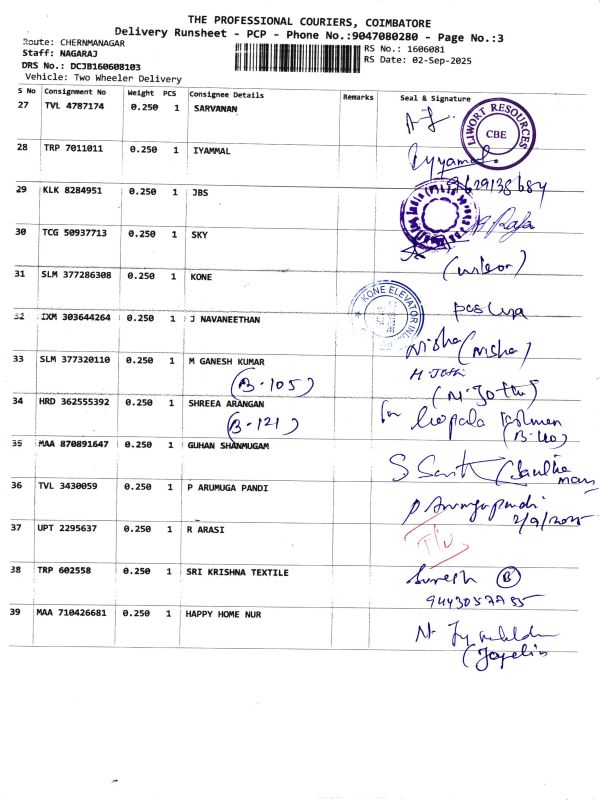 THE PROFESSIONAL COURIERS, COIMBATORE
Delivery Runsheet - PCP - Phone No.:9047080280 - Page No.:3
Route: CHERNMANAGAR
RS No.: 1606081
Staff: NAGARAJ
RS Date: 02-Sep-2025
DRS No.: DCJB160608103
Vehicle: Two Wheeler Delivery
S No Consignment No Weight PCS Consignee Details Remarks Seal & Signature
27 TVL 4787174 0.250 1 SARVANAN
LIWORT RESOURCES
CBE
28 TRP 7011011 0.250 1 IYAMMAL
Iyyamal
9629138684
29 KLK 8284951 0.250 1 JBS
30 TCG 50937713 0.250 1 SKY
31 SLM 377286308 0.250 1 KONE
KONE ELEVATOR
32 IXM 303644264 0.250 1 J NAVANEETHAN
Nisha (Nisha)
33 SLM 377320110 0.250 1 M GANESH KUMAR
(B-105)
M. Jothi
(M. Jothi)
34 HRD 362555392 0.250 1 SHREEA ARANGAN
(B-121)
for Gopala
35 MAA 870891647 0.250 1 GUHAN SHANMUGAM
36 TVL 3430059 0.250 1 P ARUMUGA PANDI
P Arumugapandi
2/9/2025
37 UPT 2295637 0.250 1 R ARASI
38 TRP 602558 0.250 1 SRI KRISHNA TEXTILE
Suresh B
39 MAA 710426681 0.250 1 HAPPY HOME NUR